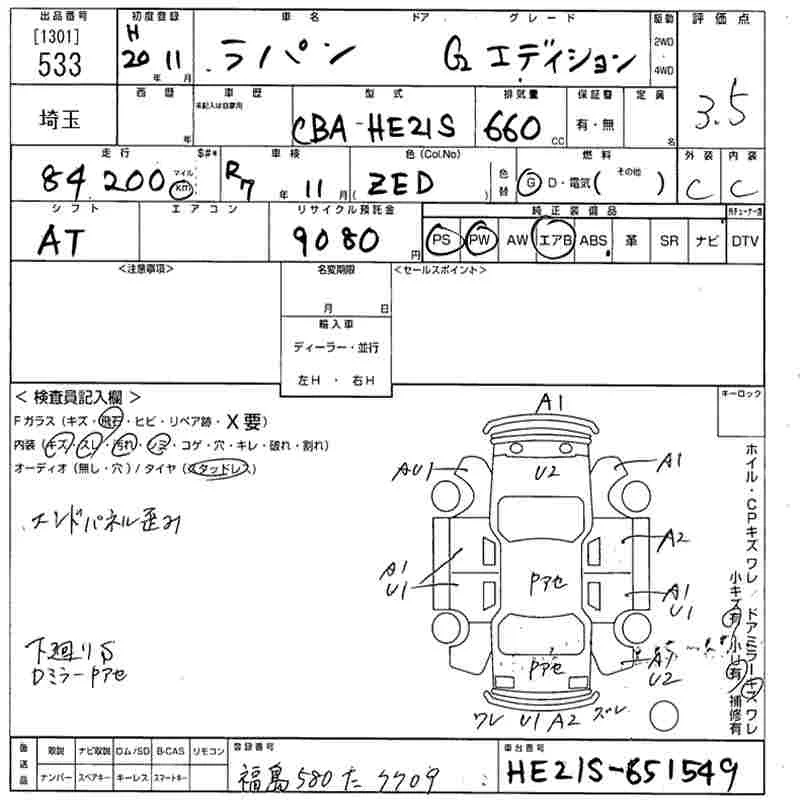 出品番号 初度登録 車名 ドア グレード 駆動 評価点
[1301] 533 H 20年 11月 ラパン G2 エディション 2WD・4WD 3.5
埼玉 西暦 年 車歴 未記入は自家用 型式 CBA-HE21S 排気量 660 CC 保証書 有・無 定員 名
走行 84,200 マイル km $#* 車検 R7年 11月 色(Col.No) (ZED) 色替 燃料 G D・電気( その他 ) 外装 C 内装 C
シフト AT エアコン リサイクル預託金 9080円 純正装備品 PS PW AW エアB ABS 革 SR ナビ DTV
<注意事項> 名変期限 月 日 <セールスポイント>
輸入車
ディーラー・並行
左H・右H
キーロック
<検査員記入欄>
Fガラス(キズ・飛石・ヒビ・リペア跡・X要)
内装(キズ・スレ・汚れ・シミ・コゲ・穴・キレ・破れ・割れ)
オーディオ(無し・穴)/タイヤ(スタッドレス)
エンドパネル歪み
下廻りS
DミラーPアセ
A1
U2
AU1 A1
A1 U1 A2
Pアセ A1 U1
Pアセ U2
ワレ U1 A2 ズレ
ホイル・CPキズ ワレ ドアミラーキズ ワレ
小キズ有 小U有 補修有
後送品 取説 ナビ取説 ロム/SD B-CAS リモコン
ナンバー スペアキー キーレス スマートキー
登録番号 福島 580 た 7709
車台番号 HE21S-851549